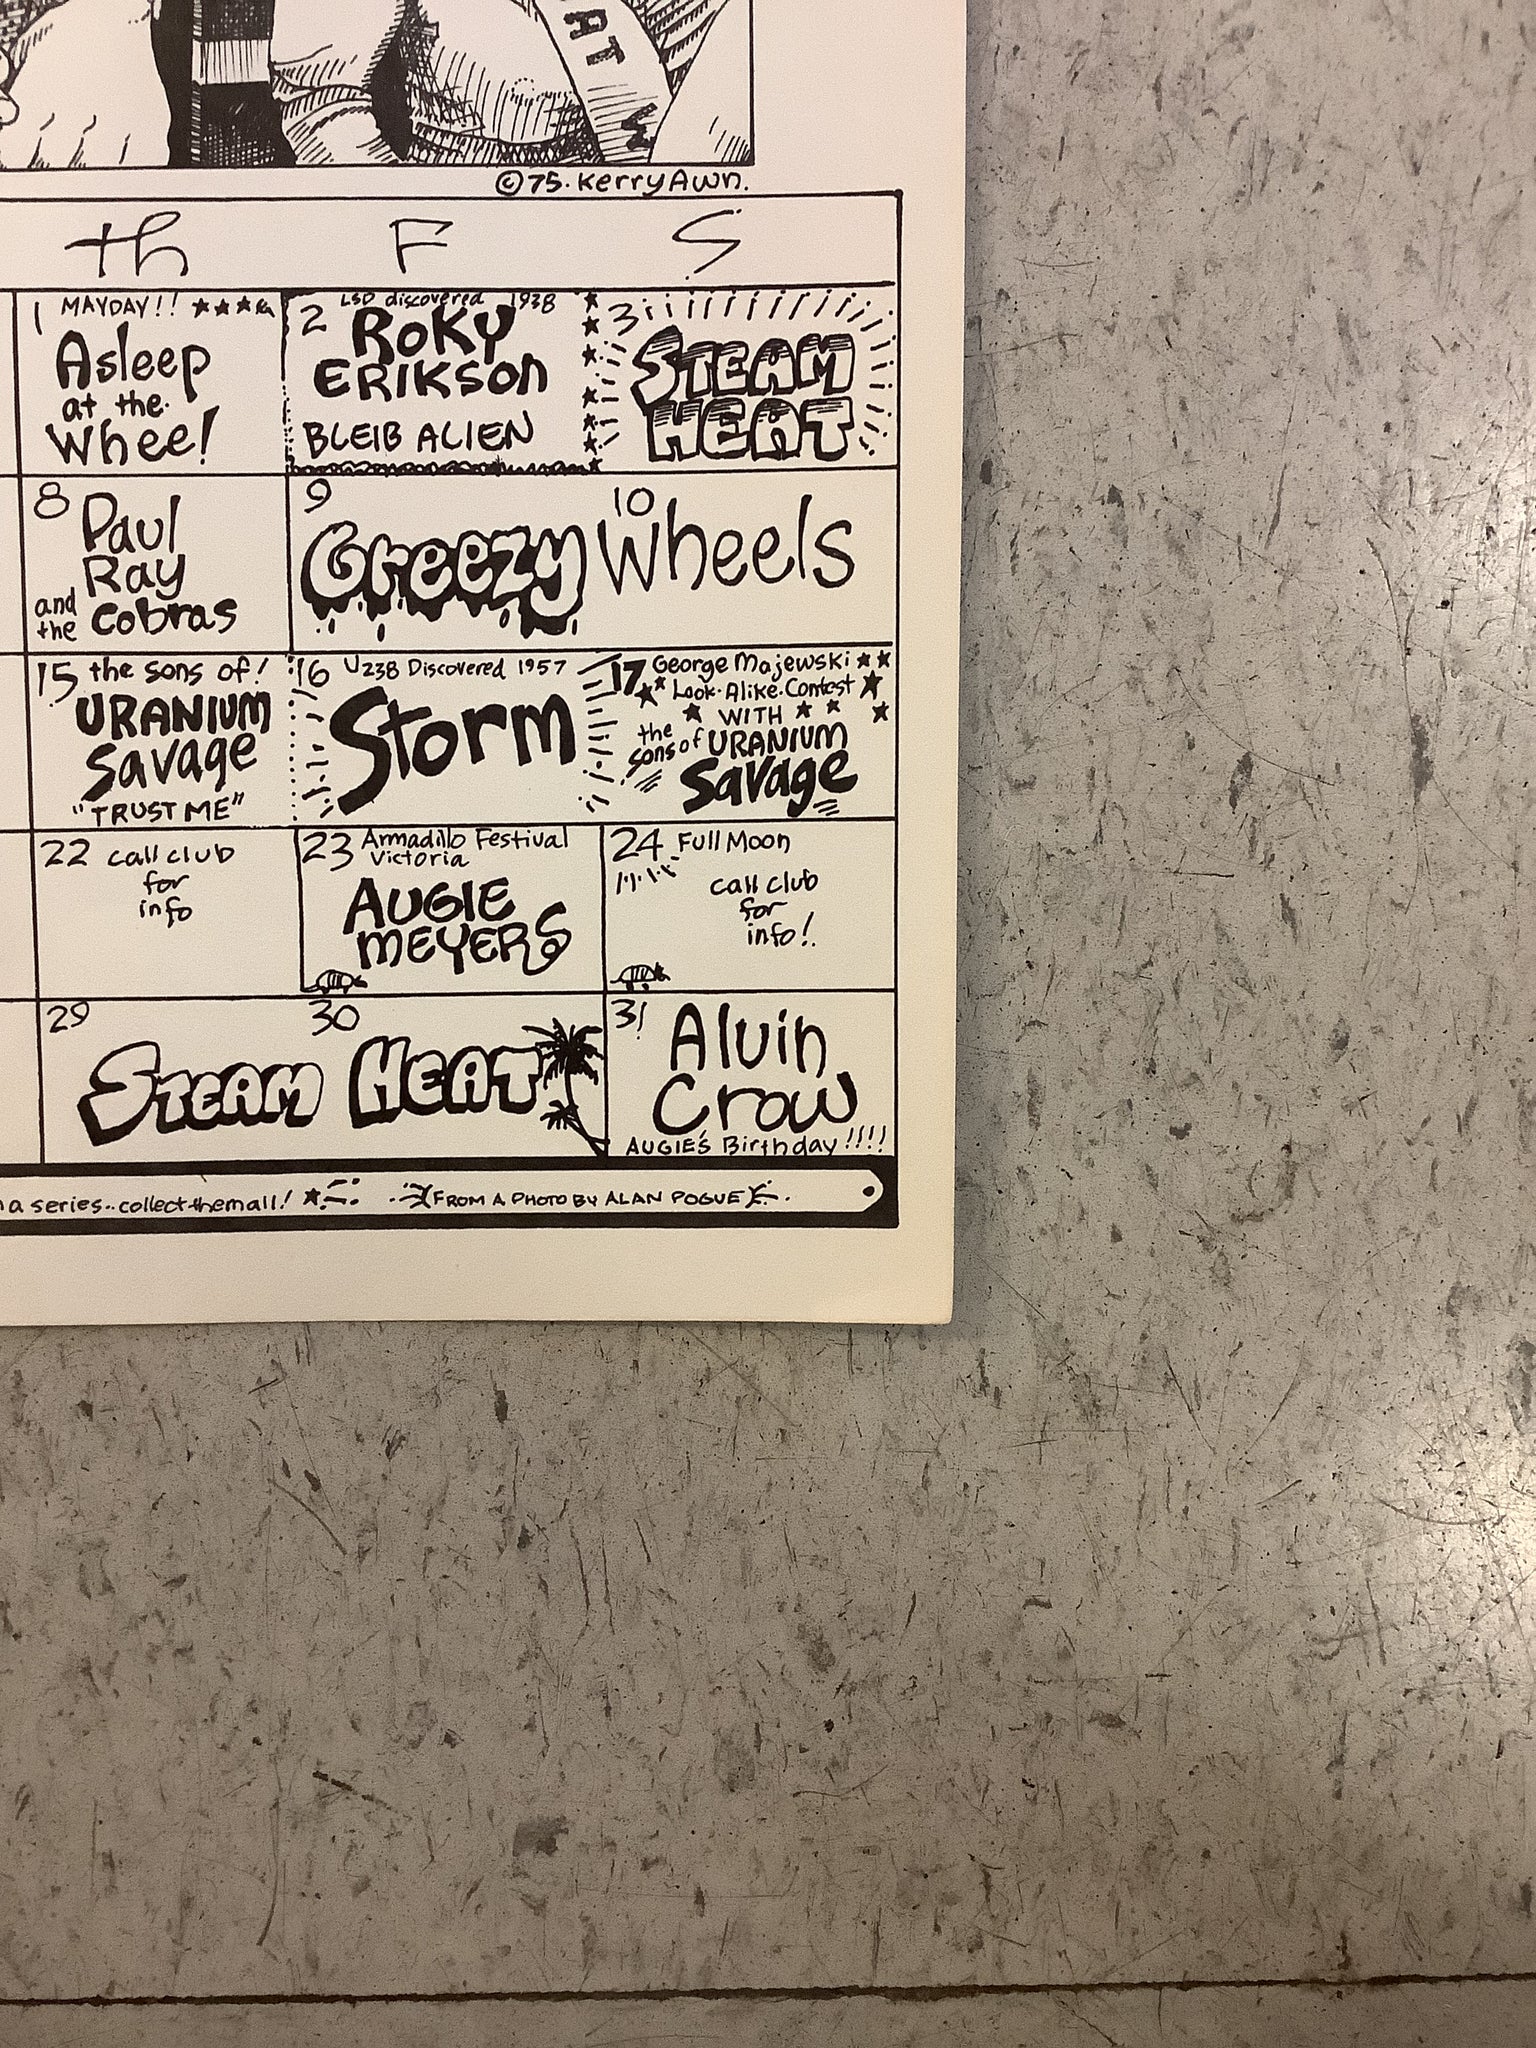 AT W
©75. Kerry Awn.
th F S
1 MAYDAY!!
Asleep
at the
Wheel
2 LSD discovered 1938
ROKY
ERIKSON
BLEIB ALIEN
3
STEAM
HEAT
8 Paul
Ray
and the Cobras
9 10
Greezy Wheels
15 the sons of!
URANIUM
Savage
"TRUST ME"
16 U238 Discovered 1957
Storm
17 George Majewski
Look-Alike-Contest
WITH
the sons of URANIUM
Savage
22 call club
for
info
23 Armadillo Festival
Victoria
AUGIE
MEYERS
24 Full Moon
call club
for
info!
29 30
STEAM HEAT
31 Alvin
Crow
AUGIE'S Birthday!!!!
a series..collect them all! (FROM A PHOTO BY ALAN POGUE)